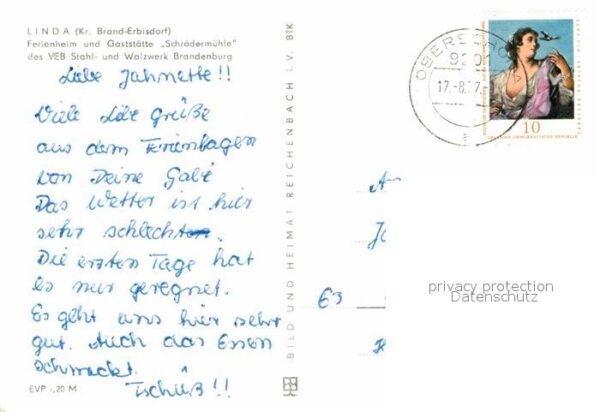 LINDA (Kr. Brand-Erbisdorf)
Ferienheim und Gaststätte „Schrödermühle"
des VEB Stahl- und Walzwerk Brandenburg
Liebe Jahnette!!
Viele liebe Grüße
aus dem Ferienlager
von Deine Gabi
Das Wetter ist hier
sehr schlecht.
Die ersten Tage hat
es nur geregnet.
Es geht uns hier sehr
gut. Auch das Essen
schmeckt.
Tschüß!!
EVP -,20 M
BILD UND HEIMAT REICHENBACH i. V. BTK
9201
17.-8.
10
DEUTSCHE DEMOKRATISCHE REPUBLIK
63
privacy protection
Datenschutz